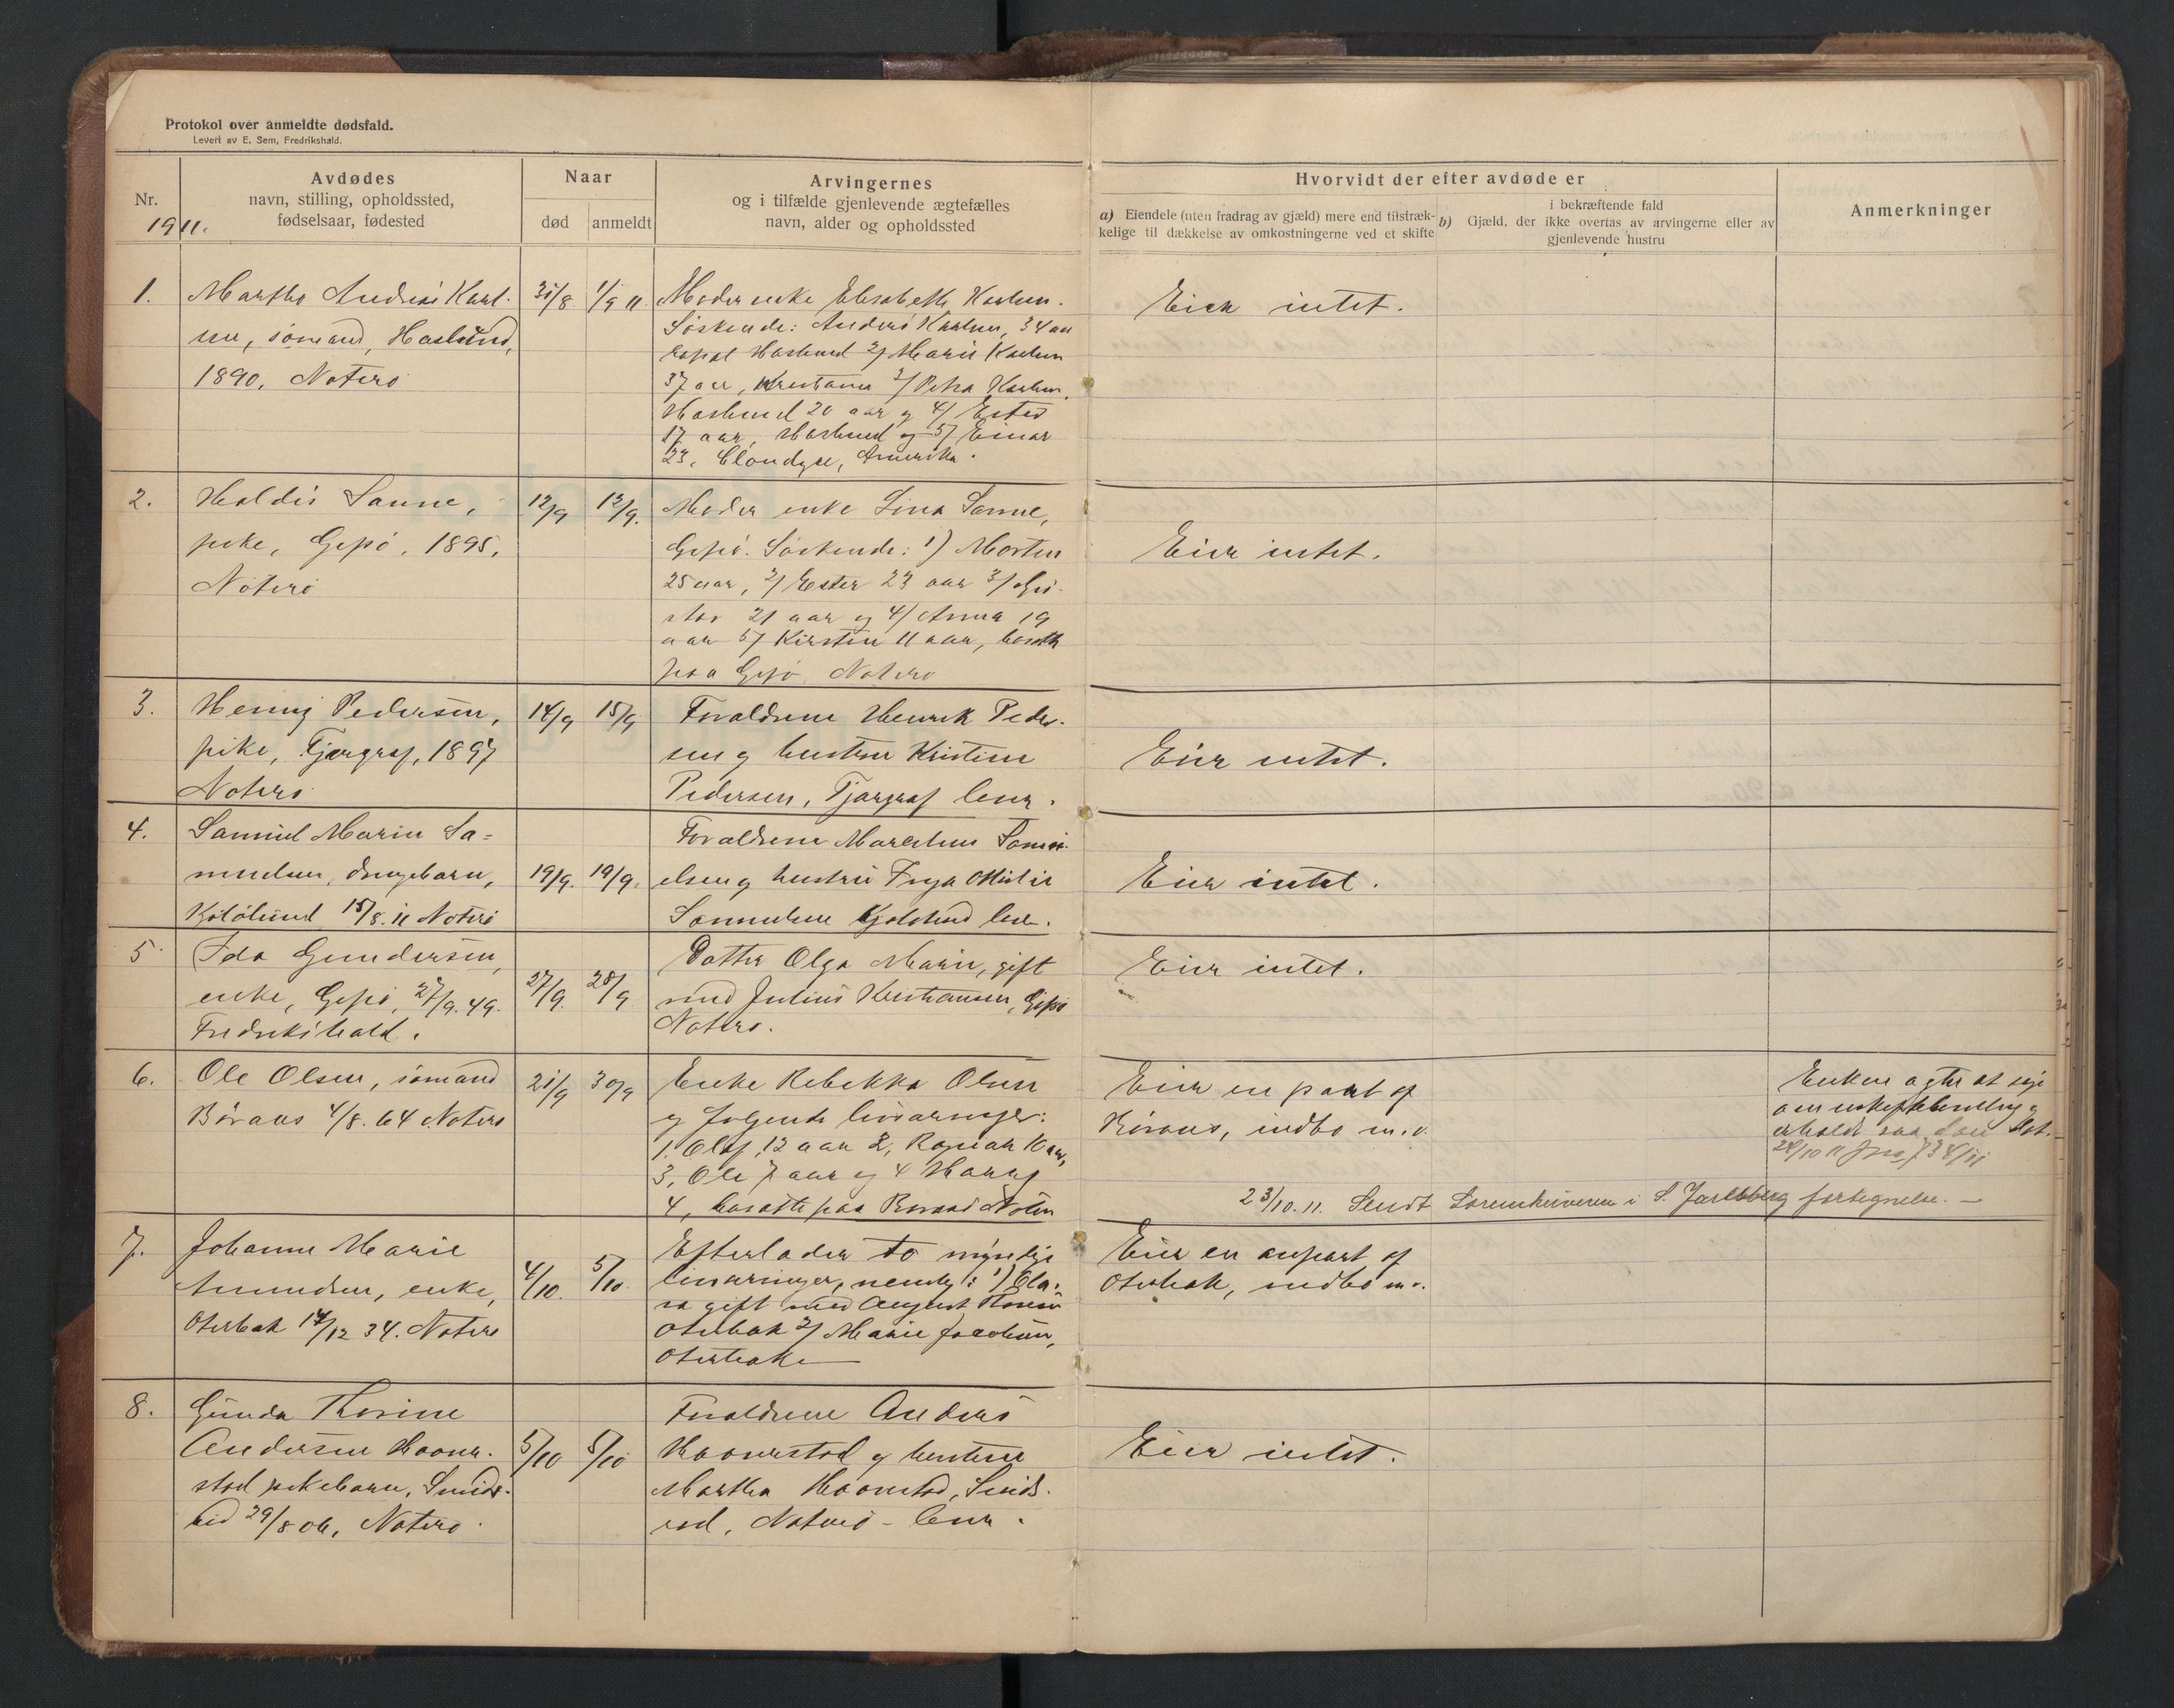 Protokol over anmeldte dødsfald.
Levert av E. Sem, Fredrikshald.
Nr.
1911.
Avdødes
navn, stilling, opholdssted,
fødselsaar, fødested
Naar
død
anmeldt
Arvingernes
og i tilfælde gjenlevende ægtefælles
navn, alder og opholdssted
Hvorvidt der efter avdøde er
a) Eiendele (uten fradrag av gjæld) mere end tilstræk-
kelige til dækkelse av omkostningerne ved et skifte
i bekræftende fald
b) Gjæld, der ikke overtas av arvingerne eller av
gjenlevende hustru
Anmerkninger
1.
Martho Andreas Karl-
sen, sømand, Haslund,
1890, Nøterø
31/8
1/9 11
Moder enke Elisabeth Karlsen.
Søskende: Anders Karlsen, 34 aar
Haslund 2/ Marie Karlsen
37 aar, Kristiania 3/ Petra Karlsen,
Haslund 20 aar og 4/ Ester
17 aar, Haslund og 5/ Einar
23, Clondyke, Amerika.
Eier intet.
2.
Haldis Sanne,
pike, Gipø, 1895,
Nøterø
12/9
12/9.
Moder enke Lina Sanne,
Gipø. Søskende: 1) Morten
25 aar, 2/ Ester 23 aar 3/ Gu-
stav 21 aar og 4/ Anna 19
aar 5/ Kirsten 11 aar, bosatte
paa Gipø Nøterø
Eier intet.
3.
Henny Pedersen,
pike, Tjørgraf, 1897
Nøterø
14/9
15/9
Forældrene Henrik Peder-
sen og hustru Kristine
Pedersen, Tjørgraf lever.
Eier intet.
4.
Samuel Marin Sa-
muelsen, drengebarn,
15/8.11 Nøterø
19/9.
19/9.
Forældrene Marelius Samu-
elsen og hustru Freya Otilie
Samuelsen lever.
Eier intet.
5
Ida Gundersen,
enke, Gipø, 27/9.49.
Fredrikshald.
27/9.
28/9
Datter Olga Marie, gift
med Julius Kristiansen, Gipø
Nøterø.
Eier intet.
6.
Ole Olsen, sømand
Buraas 4/8.64 Nøterø
21/9
30/9
Enke Rebekka Olsen
og følgende livsarvinger:
1. Olaf, 12 aar 2, Ragnar 10 aar,
3, Ole 7 aar og 4
4, bosatte paa Nøterø
Eier en part af
indbo m.v.
Enken agter at søge
om
erholdt
28/10 11
23/10.11. Sendt Sorenskriveren i S. Jarlsberg fortegnelse. —
7.
Johanne Marie
Amundsen, enke,
Oterbæk 14/12 34. Nøterø
4/10.
5/10.
Efterlader to myndige
livsarvinger, nemlig: 1) Cla-
ra gift med August
Oterbæk 2/ Marie Jacobsen,
Oterbæk —
Eier en anpart af
Oterbæk, indbo m.v.
8.
Gunda Thorine
Andersen
stad pikebarn, Smids-
rød 29/8 06, Nøterø.
5/10
5/10
Forældrene Anders
og hustru
Martha Smids-
rød, Nøterø — lever.
Eier intet.